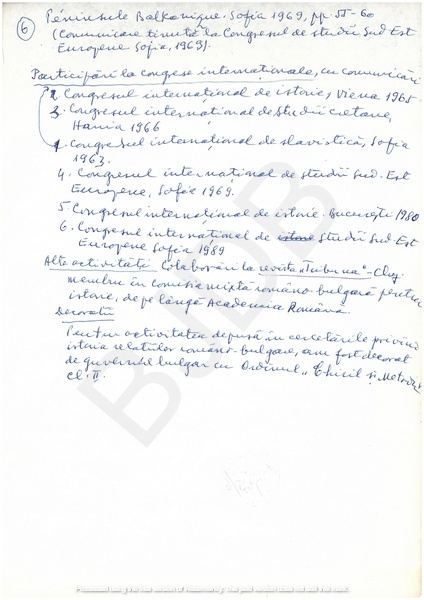 6
Péninsule Balkanique. Sofia 1969, pp. 55-60
(Comunicare ținută la Congresul de studii Sud-Est
Europene Sofia, 1969).
Participări la congrese internationale, cu comunicări
2. Congresul internațional de istorie, Viena 1965
3. Congresul internațional de studii cretane,
Hania 1966
1. Congresul internațional de slavistică, Sofia
1963.
4. Congresul internațional de studii Sud-Est
Europene, Sofia 1969.
5. Congresul internațional de istorie. București 1980
6. Congresul internațional de istorie studii Sud-Est
Europene Sofia 1989
Alte activități Colaborări la revista "Tribuna" - Cluj
membru în comisia mixtă româno-bulgară pentru
istorie, de pe lângă Academia Română.
Decorații
Pentru activitatea depusă în cercetările privind
istoria relațiilor româno-bulgare, am fost decorat
de guvernul bulgar cu Ordinul "Chiril și Metodiu"
cl. II.
BCDB